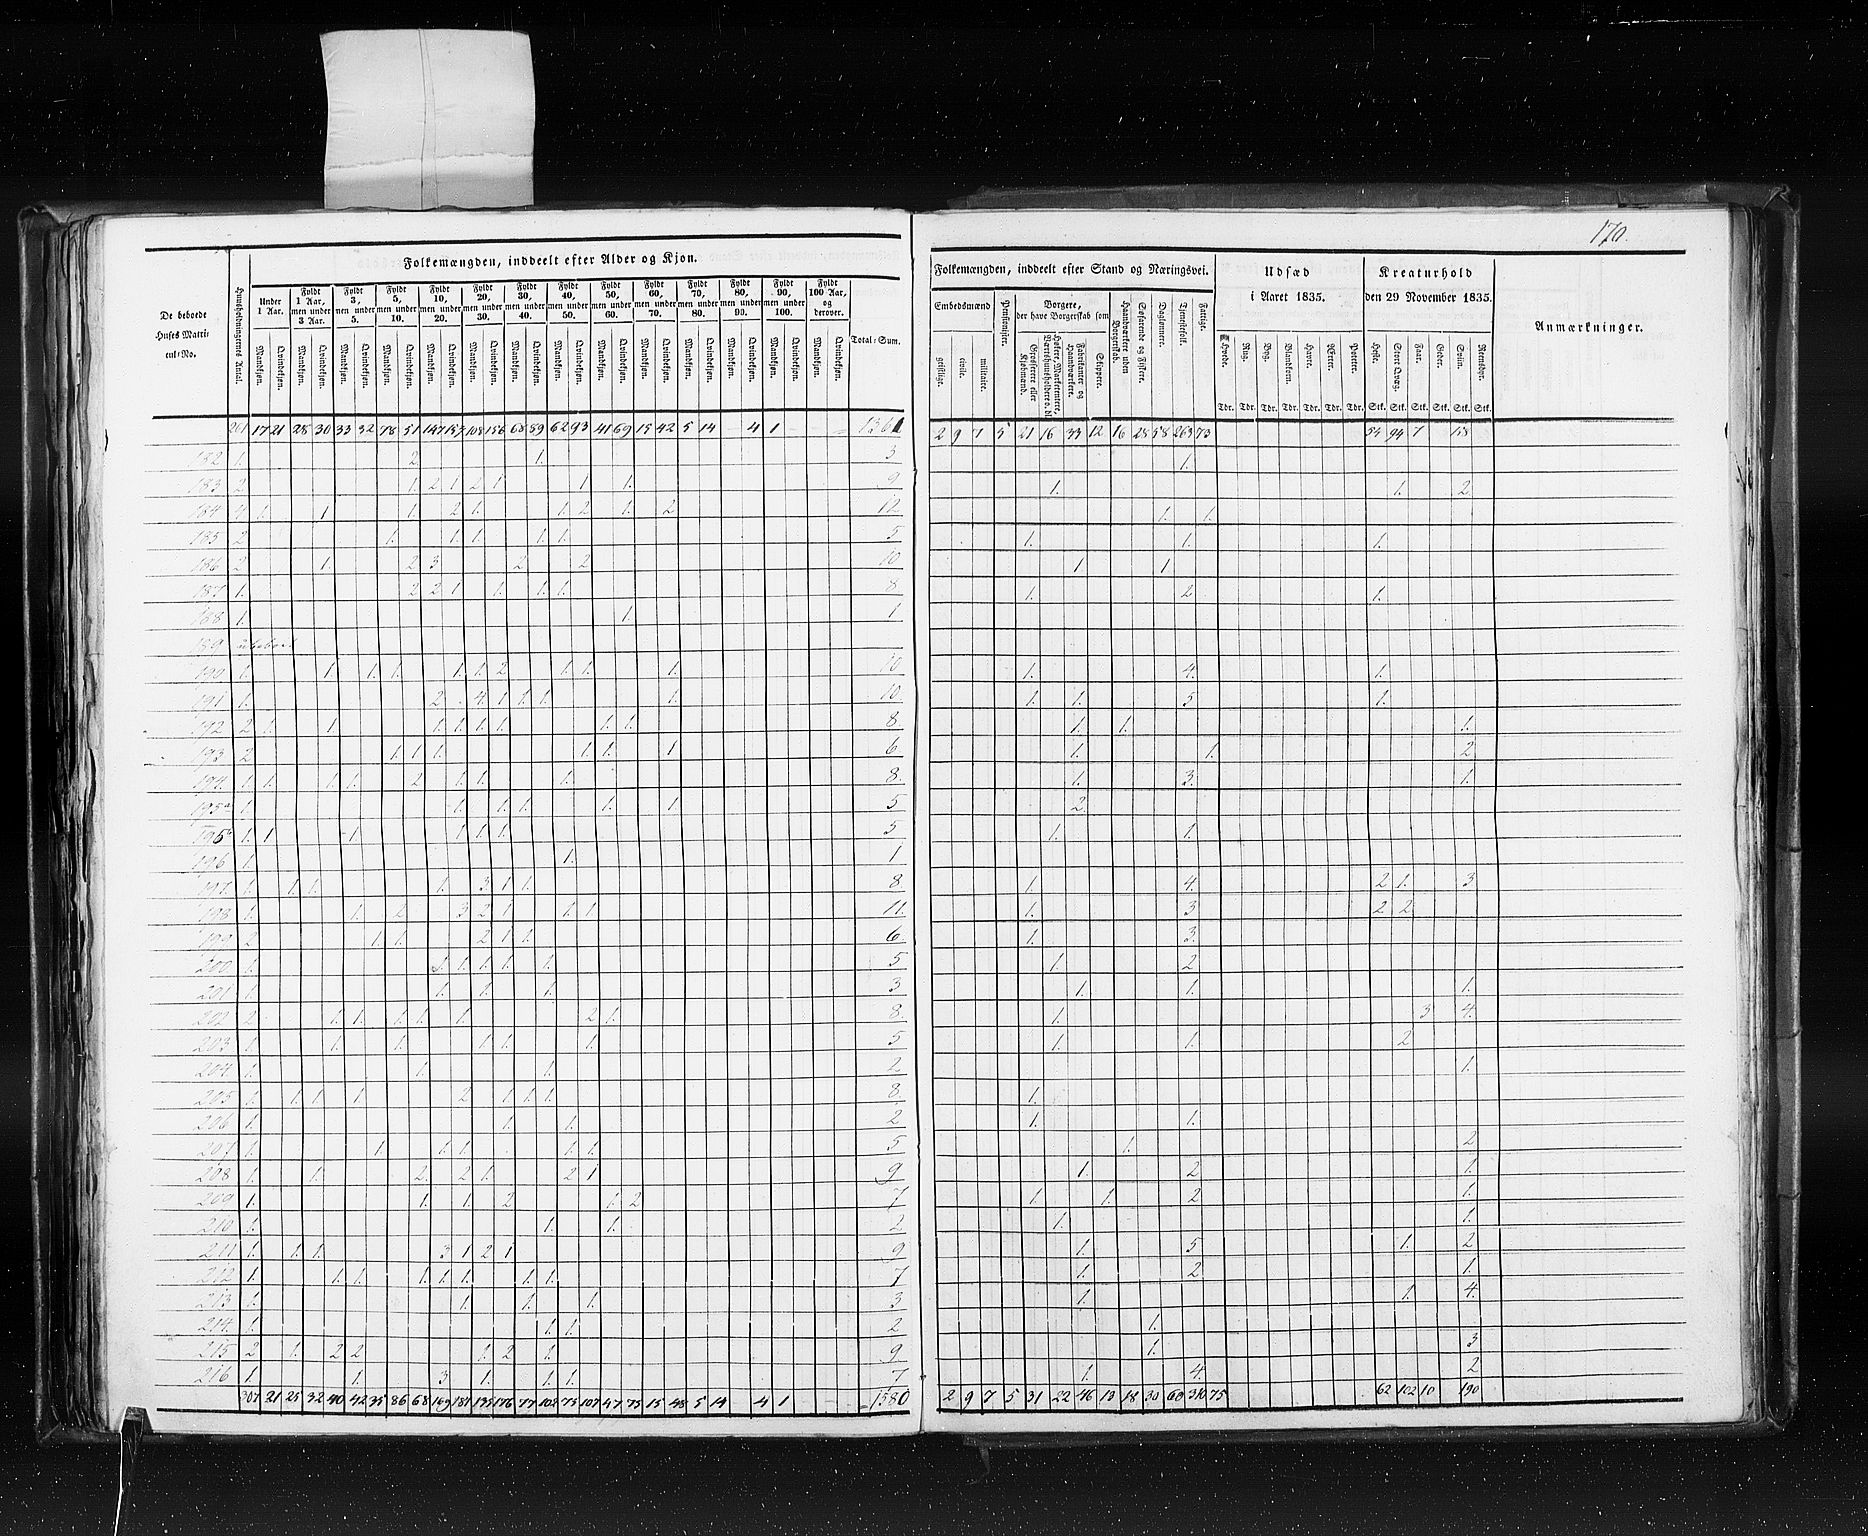 170.
Folkemængden, inddeelt efter Alder og Kjøn.
De beboede Huses Matricul-No.
Huusholdningernes Antal.
Under 1 Aar.
Fyldt 1 Aar, men under 3 Aar.
Fyldt 3, men under 5.
Fyldt 5, men under 10.
Fyldt 10, men under 20.
Fyldt 20, men under 30.
Fyldt 30, men under 40.
Fyldt 40, men under 50.
Fyldt 50, men under 60.
Fyldt 60, men under 70.
Fyldt 70, men under 80.
Fyldt 80, men under 90.
Fyldt 90, men under 100.
Fyldt 100 Aar, og derover.
Total-Sum.
Mandkjøn. Qvindekjøn.
261 17 21 28 30 33 32 78 51 147 157 108 156 68 89 62 93 41 69 15 42 5 14 4 1 1361
182 1. 2 1. 3
183 2 1. 2 1 2 1 1. 1. 9
184 4 1. 1 1. 2 1. 1. 2 1. 2 12
185 2 1. 1. 1. 1. 1. 5
186 2 1. 2 3 2 2 10
187 1. 2 2 1 1. 1. 1. 8
188 1. 1. 1
189 ubeboet.
190 1. 1. 1. 1. 1. 1. 2 1. 1. 1. 10
191 1. 2 4 1 1. 1. 1. 10.
192 2 1. 1. 1. 1. 1. 1. 1. 1. 8.
193 2 1. 1. 1. 1. 1. 1 6
194 1. 1. 1. 1. 2 1. 1. 1. 8.
195a 1. 1. 1. 1. 1. 1. 5
195b 1. 1 1. 1. 1. 1. 5
196 1. 1. 1
197 1. 1. 1. 1. 3 1 1. 8.
198 1. 1. 2 3 2 1 1. 1 11.
199 2 1. 1. 2 1 1. 6.
200 1. 1. 1. 1. 1. 1. 5
201 1. 1. 1. 1. 3
202 2 1. 1. 1. 1. 1. 2 1. 8.
203 1. 1. 1. 1. 1. 1. 5
204 1. 1. 1. 2
205 1. 1. 1. 1. 2 1 1. 1. 8.
206 1. 1. 1. 2
207 1. 1. 1. 1. 1. 1. 5
208 1. 1. 2. 2 1. 2 1 9
209 1. 1. 1. 2 1. 2 7
210 1. 1. 1. 2
211 1. 1. 1. 3 1 2 1 9
212 1. 1. 1. 1. 1. 1. 1. 1. 7
213 1. 1. 1. 1. 3
214. 1. 1. 1. 2
215 2 1. 2 2 1. 2 1. 9
216 1. 1. 3 1. 1. 1. 7
307 21 25 32 40 42 35 86 68 169 181 135 176 77 102 75 107 47 75 15 48 5 14 4 1 1580
Folkemængden, inddeelt efter Stand og Næringsvei.
Embedsmænd
geistlige.
civile.
militaire.
Pensionister.
Borgere, der have Borgerskab som
Grosserere eller Kjøbmænd.
Høkere, Marketentere, Værtshuusholdere o. dl.
Fabrikanter og Haandværkere.
Skippere.
Haandværkere uden Borgerskab.
Søfarende og Fiskere.
Daglønnere.
Tjenestefolk.
Fattige.
Udsæd i Aaret 1835.
Hvede. Rug. Byg. Blandkorn. Havre. Ærter. Poteter.
Tdr. Tdr. Tdr. Tdr. Tdr. Tdr. Tdr.
Kreaturhold den 29 November 1835.
Heste. Stort Qvæg. Faar. Geder. Sviin. Rensdyr.
Stk. Stk. Stk. Stk. Stk. Stk.
Anmærkninger.
2 9 7 5 21 16 33 12 16 28 58 263 73 54 94 7 158
1.
1. 1. 2
1. 1.
1. 1. 1.
1 1
1. 2 1.
1. 4. 1.
1. 1. 5 1.
1. 1. 1.
1. 1. 2
1. 3. 1.
2.
1. 1.
1. 4. 2 1. 3
1. 3 2 2
1. 3.
1. 2
1. 1. 1.
1. 3 4.
1. 1. 2
1.
1.
1. 1.
1. 2
1. 2 1.
1. 1. 2 1.
1. 1.
1. 5 1. 2
1. 2 1.
1. 1. 4.
1.
1. 3
1. 4. 2
2 9 7 5 31 22 46 13 18 30 60 310 75 62 102 10 190